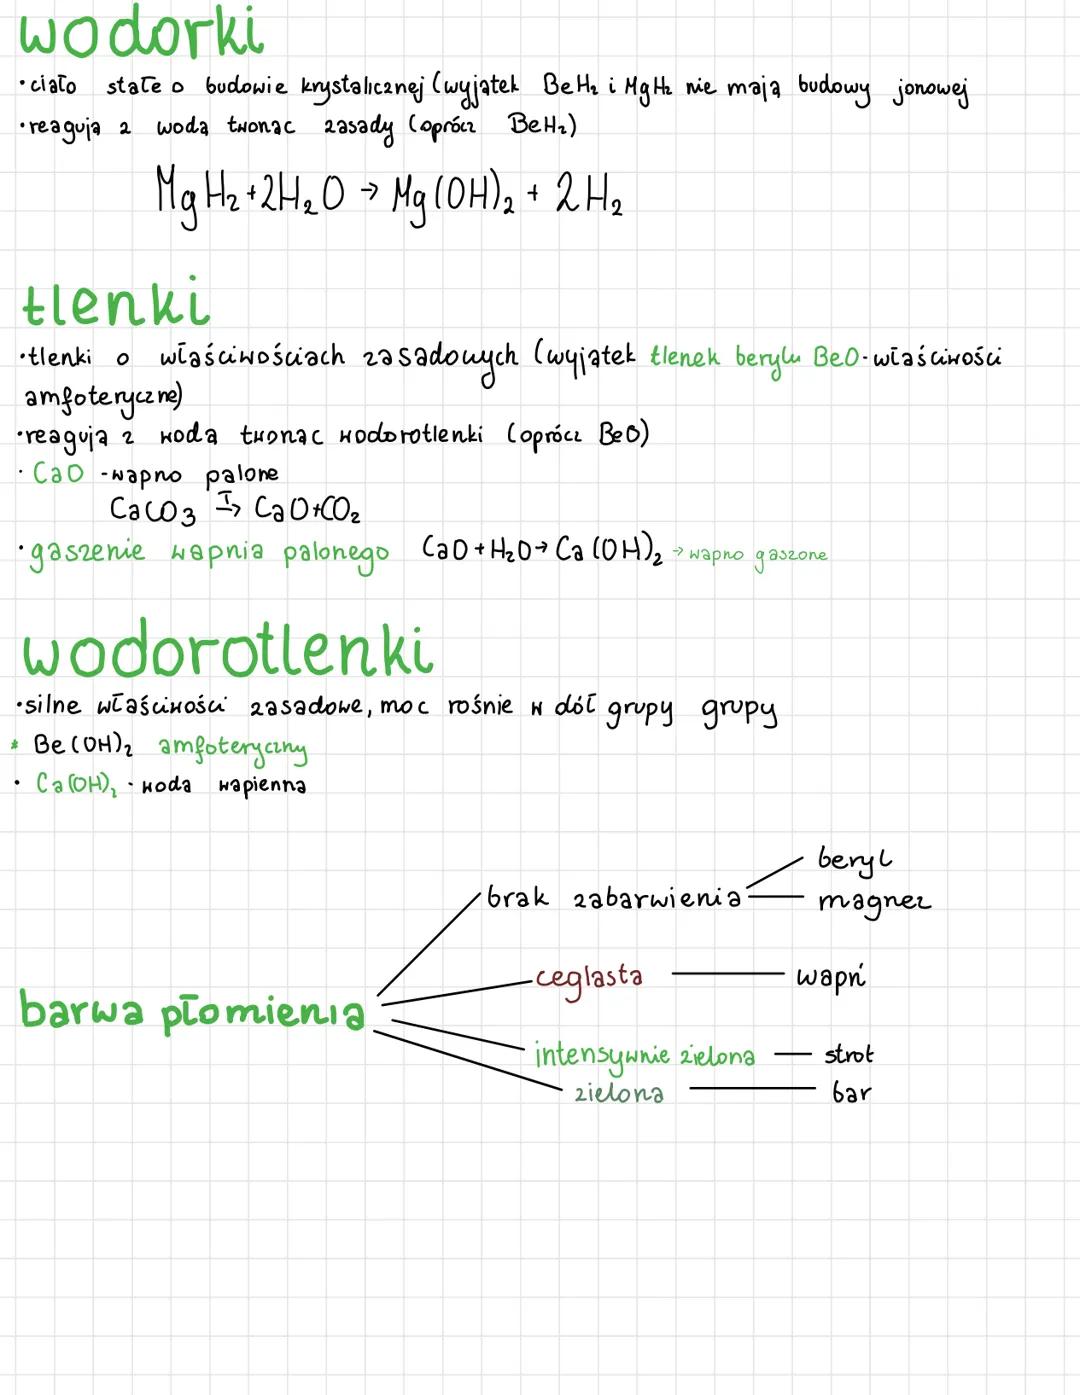 wodorki
•ciało stałe o budowie krystalicznej (wyjątek BeH₂ i MgH₂ nie mają budowy jonowej
•reagują z wodą tworząc zasady (oprócz BeH₂)
MgH₂+2H₂O → Mg(OH)₂ + 2H₂
tlenki
•tlenki o właściwościach zasadowych (wyjątek tlenek berylu BeO-właściwości
amfoteryczne)
•reagują z wodą tworząc wodorotlenki (oprócz BeO)
• CaO -wapno palone
CaCO₃ T→ CaO+CO₂
•gaszenie wapnia palonego CaO+H₂O→Ca(OH)₂ → wapno gaszone
wodorotlenki
•silne właściwości zasadowe, moc rośnie w dół grupy grupy
* Be(OH)₂ amfoteryczny
• Ca(OH)₂ - woda wapienna
beryl
brak zabarwienia magnez
ceglasta wapń
barwa płomienia
intensywnie zielona stront
zielona bar